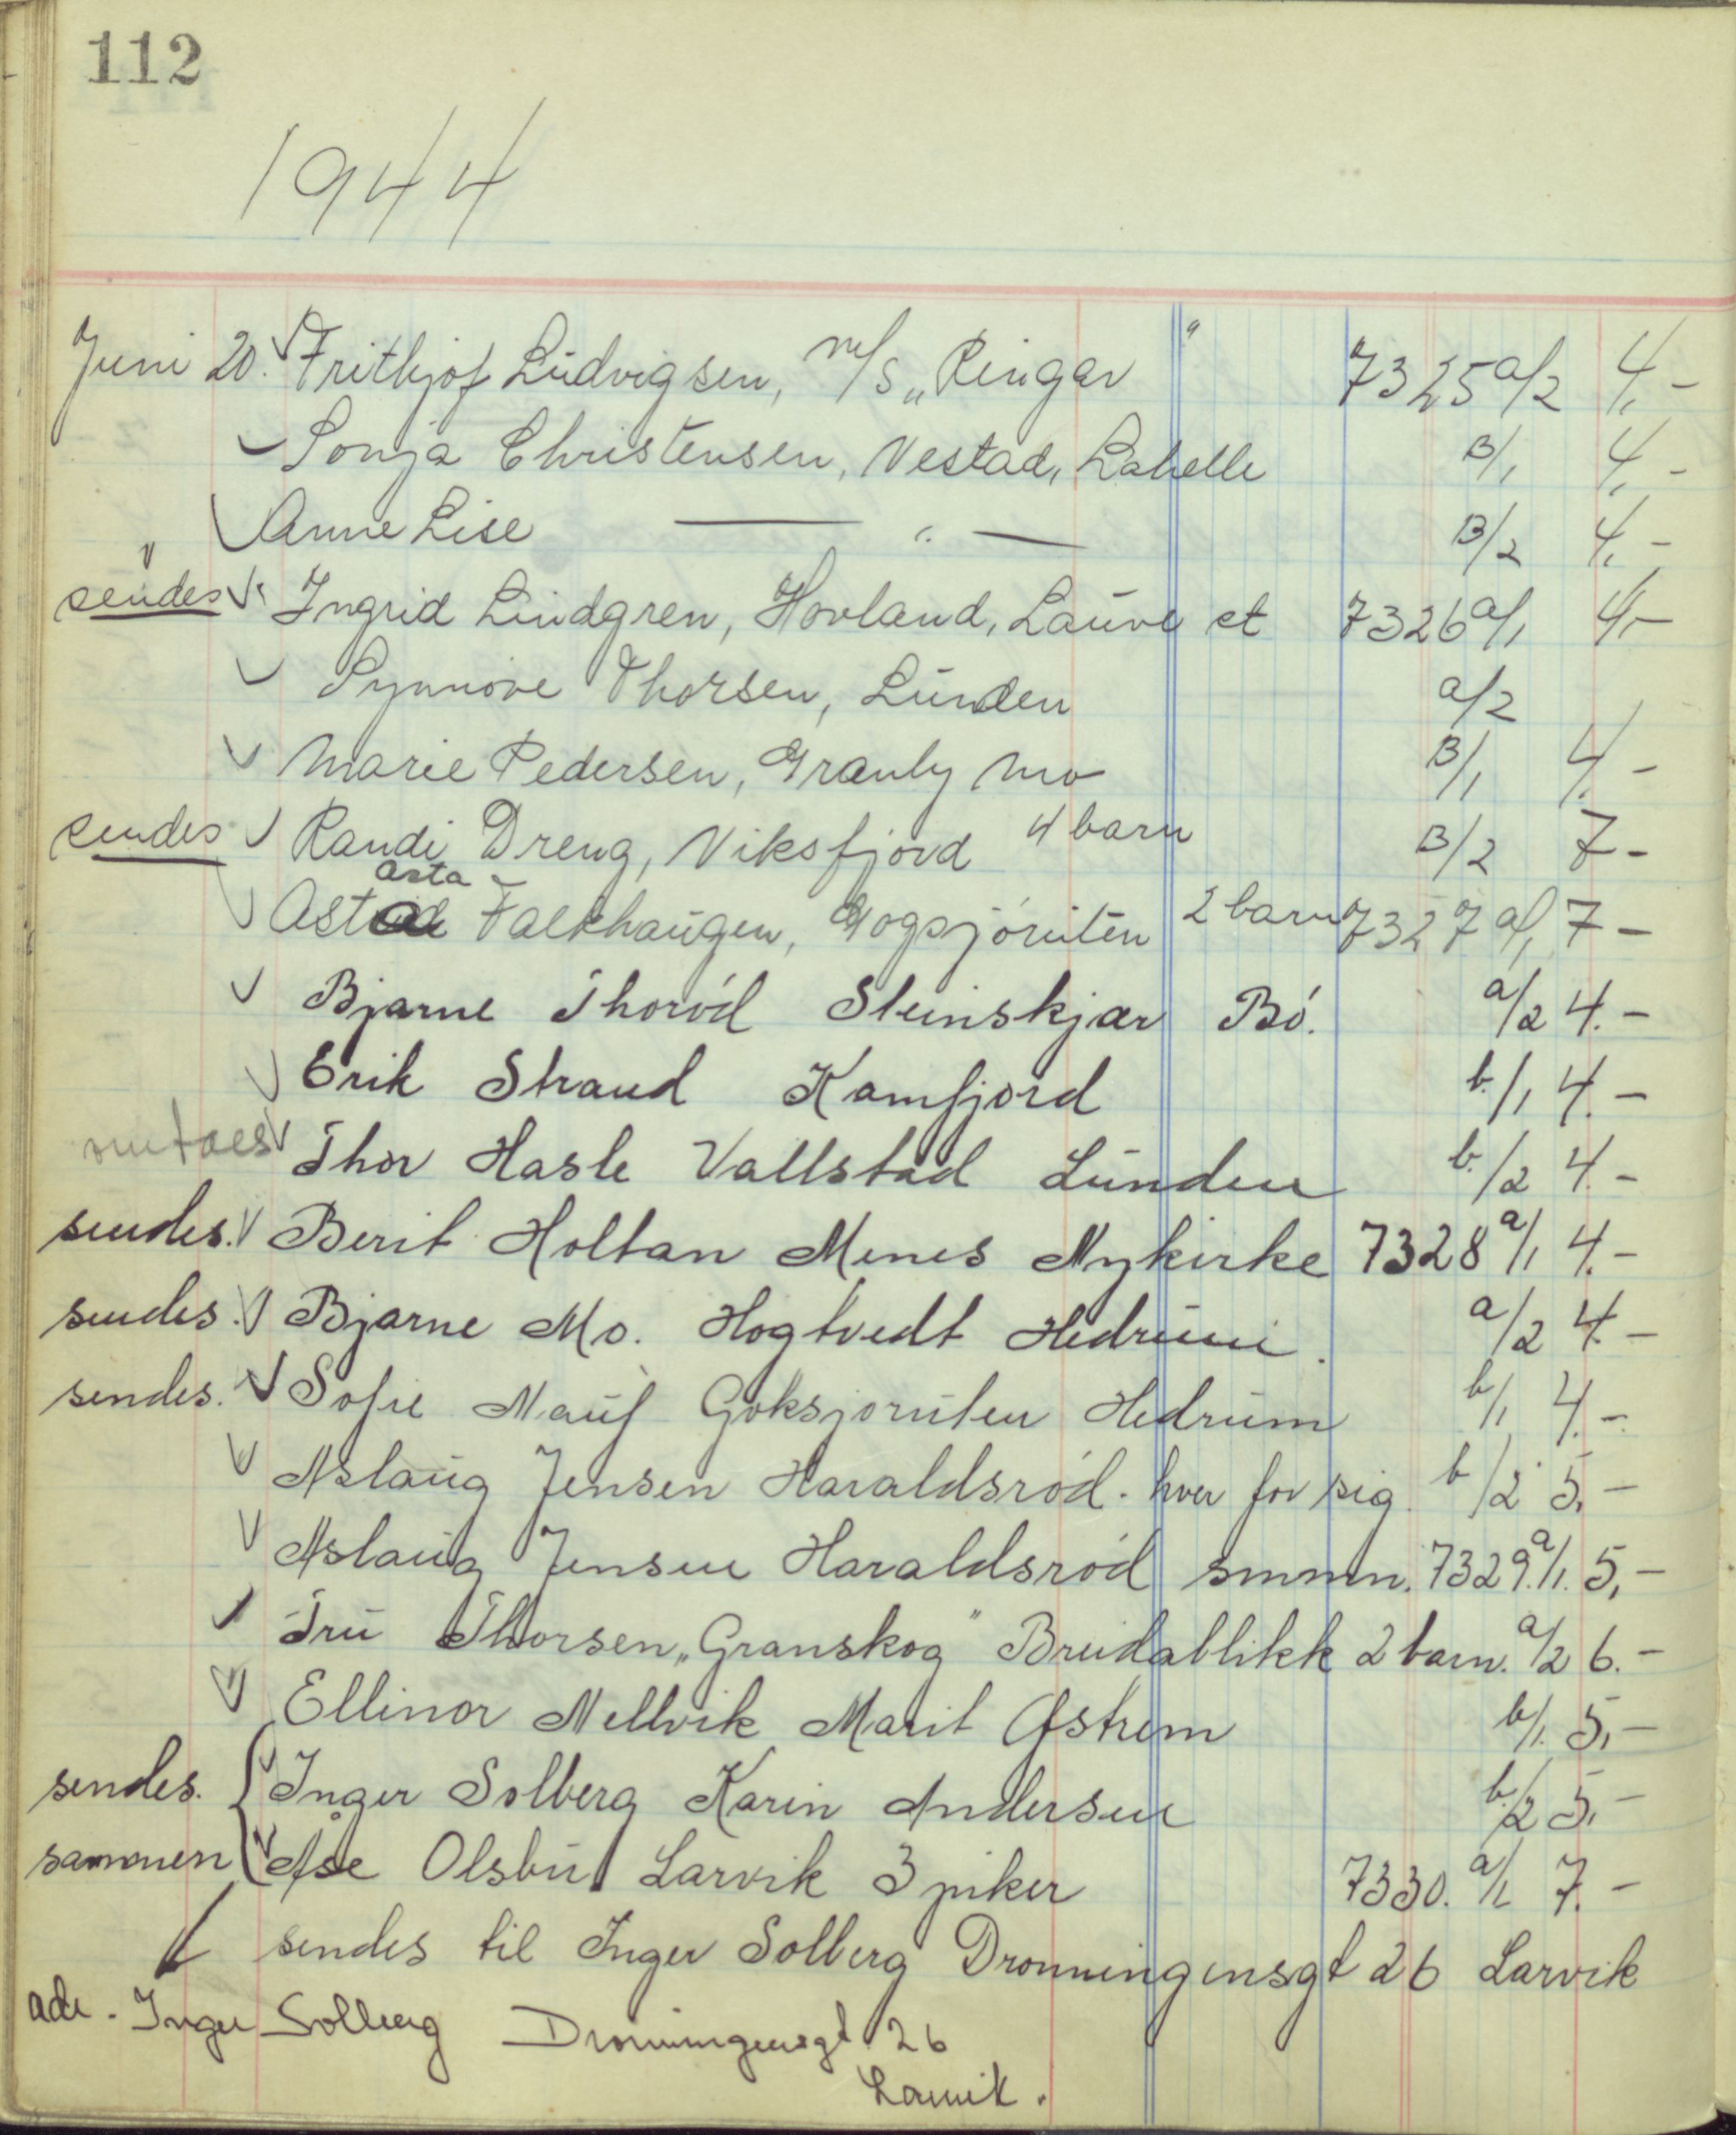 112
1944
Juni 20. Frithjof Ludvigsen, M/S „Ringar" 7325 a/2 4,-
Sonja Christensen, Nestad, Labelle B/1 4,-
Anne Lise — „ — B/2 4,-
"
sendes Ingrid Lindgren, Hovland, Lauve et 7326 a/1 4,-
Synnöve Thorsen, Lunden a/2
Marie Pedersen, Granly Mo B/1 4.-
sendes Randi Dreng, Viksfjord 4 barn B/2 7-
Asta
Falkhaugen, Gogsjöruten 2 barn 7327 a/1 7-
Bjarne Thoröd Steinskjær Bö. a/2 4.-
Erik Strand Kamfjord b/1 4.-
omtaes Thor Hasle Vallstad Lunden b./2 4.-
sendes. Berit Holtan Menes Nykirke 7328 a/1 4.-
sendes. Bjarne Mo. Hogtvedt Hedrum. a/2 4.-
sendes. Sofie Nauf Goksjoruten Hedrum b/1 4.-
Aslaug Jensen Haraldsröd. hver for sig. b/2 5,-
Aslaug Jensen Haraldsröd smmn. 7329. a/1. 5,-
Fru Thorsen „Granskog" Breidablikk 2 barn. a/2 6.-
Ellinor Mellvik Marit Åström b/1. 5,-
sendes. Inger Solberg Karin Andersen b./2 5,-
sammen Åse Olsbu Larvik 3 piker 7330. a/1 7.-
sendes til Inger Solberg Dronningensgt 26 Larvik
adr. Inger Solberg Dronningensgt 26
Larvik.